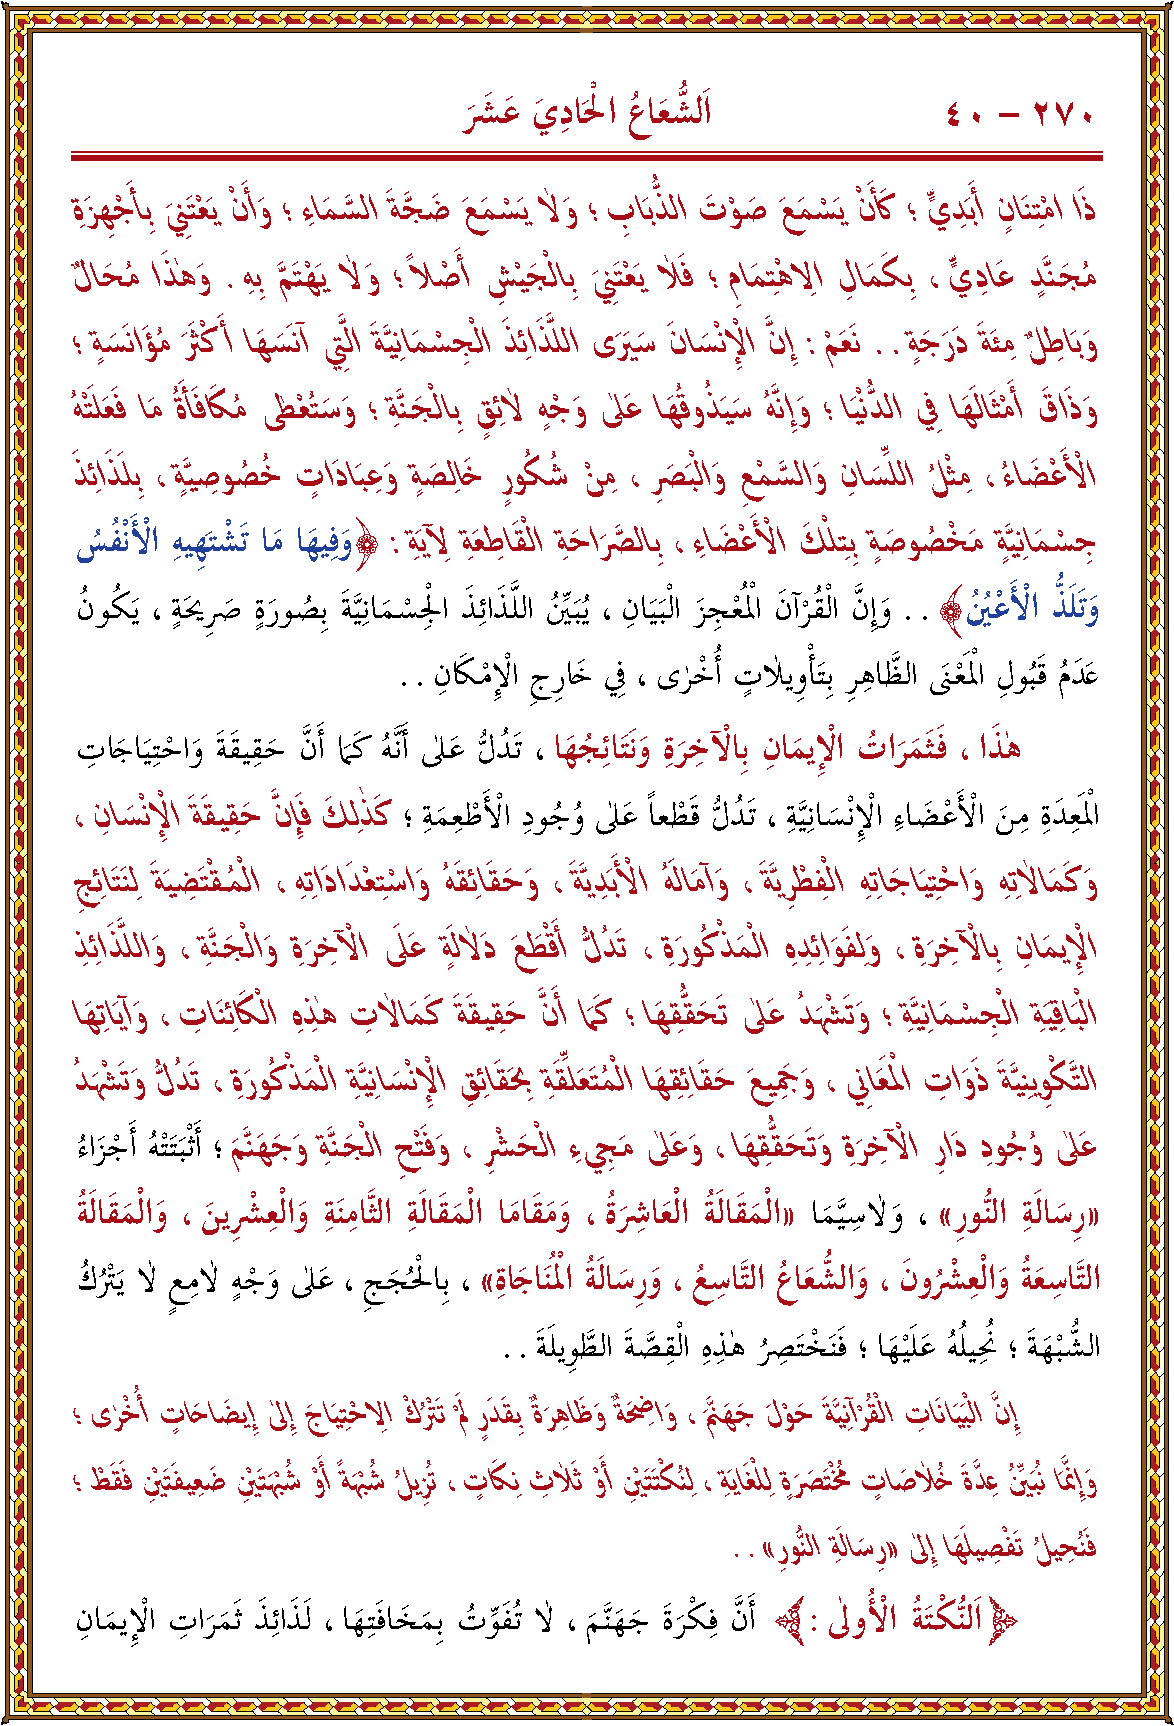 ٢٧٠ – ٤٠
اَلشُّعَاعُ الْحَادِيَ عَشَرَ
ذَا امْتِنَانٍ أَبَدِيٍّ ؛ كَأَنْ يَسْمَعَ صَوْتَ الذُّبَابِ ؛ وَلاٰ يَسْمَعَ ضَجَّةَ السَّمَاءِ ؛ وَأَنْ يَعْتَنِيَ بِأَجْهِزَةِ
مُجَنَّدٍ عَادِيٍّ ، بِكَمَالِ الاِهْتِمَامِ ؛ فَلاٰ يَعْتَنِيَ بِالْجَيْشِ أَصْلاً ؛ وَ لاٰ يَهْتَمَّ بِهِ . وَهٰذَا مُحَالٌ
وَبَاطِلٌ مِئَةَ دَرَجَةٍ . . نَعَمْ : إِنَّ الْإِنْسَانَ سَيَرَى اللَّذَائِذَ الْجِسْمَانِيَّةَ الَّتِي آنَسَهَا أَكْثَرَ مُؤَانَسَةٍ ؛
وَذَاقَ أَمْثَالَهَا فِي الدُّنْيَا ؛ وَإِنَّهُ سَيَذُوقُهَا عَلٰى وَجْهٍ لاٰئِقٍ بِالْجَنَّةِ ؛ وَسَتُعْطٰى مُكَافَأَةُ مَا فَعَلَتْهُ
الْأَعْضَاءُ ، مِثْلُ اللِّسَانِ وَالسَّمْعِ وَالْبَصَرِ ، مِنْ شُكُورٍ خَالِصَةٍ وَعِبَادَاتٍ خُصُوصِيَّةٍ ، بِلَذَائِذَ
جِسْمَانِيَّةٍ مَخْصُوصَةٍ بِتِلْكَ الْأَعْضَاءِ ، بِالصَّرَاحَةِ الْقَاطِعَةِ لِآيَةِ : ﴿وَفِيهَا مَا تَشْتَهِيهِ الْأَنْفُسُ
وَتَلَذُّ الْأَعْيُنُ﴾ . . وَإِنَّ الْقُرْآنَ الْمُعْجِزَ الْبَيَانِ ، يُبَيِّنُ اللَّذَائِذَ الْجِسْمَانِيَّةَ بِصُورَةٍ صَرِيحَةٍ ، يَكُونُ
عَدَمُ قَبُولِ الْمَعْنَى الظَّاهِرِ بِتَأْوِيلاٰتٍ أُخْرٰى ، فِي خَارِجِ الْإِمْكَانِ . .
هٰذَا ، فَثَمَرَاتُ الْإِيمَانِ بِالْآخِرَةِ وَنَتَائِجُهَا ، تَدُلُّ عَلٰى أَنَّهُ كَمَا أَنَّ حَقِيقَةَ وَاحْتِيَاجَاتِ
الْمَعِدَةِ مِنَ الْأَعْضَاءِ الْإِنْسَانِيَّةِ ، تَدُلُّ قَطْعاً عَلٰى وُجُودِ الْأَطْعِمَةِ ؛ كَذٰلِكَ فَإِنَّ حَقِيقَةَ الْإِنْسَانِ ،
وَكَمَالاٰتِهِ وَاحْتِيَاجَاتِهِ الْفِطْرِيَّةَ ، وَآمَالَهُ الْأَبَدِيَّةَ ، وَحَقَائِقَهُ وَاسْتِعْدَادَاتِهِ ، الْمُقْتَضِيَةَ لِنَتَائِجِ
الْإِيمَانِ بِالْآخِرَةِ ، وَلِفَوَائِدِهِ الْمَذْكُورَةِ ، تَدُلُّ أَقْطَعَ دَلاٰلَةٍ عَلَى الْآخِرَةِ وَالْجَنَّةِ ، وَاللَّذَائِذِ
الْبَاقِيَةِ الْجِسْمَانِيَّةِ ؛ وَتَشْهَدُ عَلٰى تَحَقُّقِهَا ؛ كَمَا أَنَّ حَقِيقَةَ كَمَالاٰتِ هٰذِهِ الْكَائِنَاتِ ، وَآيَاتِهَا
التَّكْوِينِيَّةَ ذَوَاتِ الْمَعَانِي ، وَجَمِيعَ حَقَائِقِهَا الْمُتَعَلِّقَةِ بِحَقَائِقِ الْإِنْسَانِيَّةِ الْمَذْكُورَةِ ، تَدُلُّ وَتَشْهَدُ
عَلٰى وُجُودِ دَارِ الْآخِرَةِ وَتَحَقُّقِهَا ، وَعَلٰى مَجِيءِ الْحَشْرِ ، وَفَتْحِ الْجَنَّةِ وَجَهَنَّمَ ؛ أَثْبَتَتْهُ أَجْزَاءُ
«رِسَالَةِ النُّورِ» ، وَلاٰسِيَّمَا «الْمَقَالَةُ الْعَاشِرَةُ ، وَمَقَامَا الْمَقَالَةِ الثَّامِنَةِ وَالْعِشْرِينَ ، وَالْمَقَالَةُ
التَّاسِعَةُ وَالْعِشْرُونَ ، وَالشُّعَاعُ التَّاسِعُ ، وَرِسَالَةُ الْمُنَاجَاةِ» ، بِالْحُجَجِ ، عَلٰى وَجْهٍ لاٰمِعٍ لاٰ يَتْرُكُ
الشُّبْهَةَ ؛ نُحِيلُهُ عَلَيْهَا ؛ فَنَخْتَصِرُ هٰذِهِ الْقِصَّةَ الطَّوِيلَةَ . .
إِنَّ الْبَيَانَاتِ الْقُرْآنِيَّةَ حَوْلَ جَهَنَّمَ ، وَاضِحَةٌ وَظَاهِرَةٌ بِقَدَرٍ لَمْ تَتْرُكْ الاِحْتِيَاجَ إِلٰى إِيضَاحَاتٍ أُخْرٰى ؛
وَإِنَّمَا نُبَيِّنُ عِدَّةَ خُلاٰصَاتٍ مُخْتَصَرَةٍ لِلْغَايَةِ ، لِنُكْتَتَيْنِ أَوْ ثَلاٰثِ نِكَاتٍ ، تُزِيلُ شُبْهَةً أَوْ شُبْهَتَيْنِ ضَعِيفَتَيْنِ فَقَطْ ؛
فَنُحِيلُ تَفْصِيلَهَا إِلٰى «رِسَالَةِ النُّورِ» . .
﴿اَلنُّكْتَةُ الْأُولٰى :﴾ أَنَّ فِكْرَةَ جَهَنَّمَ ، لاٰ تُفَوِّتُ بِمَخَافَتِهَا ، لَذَائِذَ ثَمَرَاتِ الْإِيمَانِ